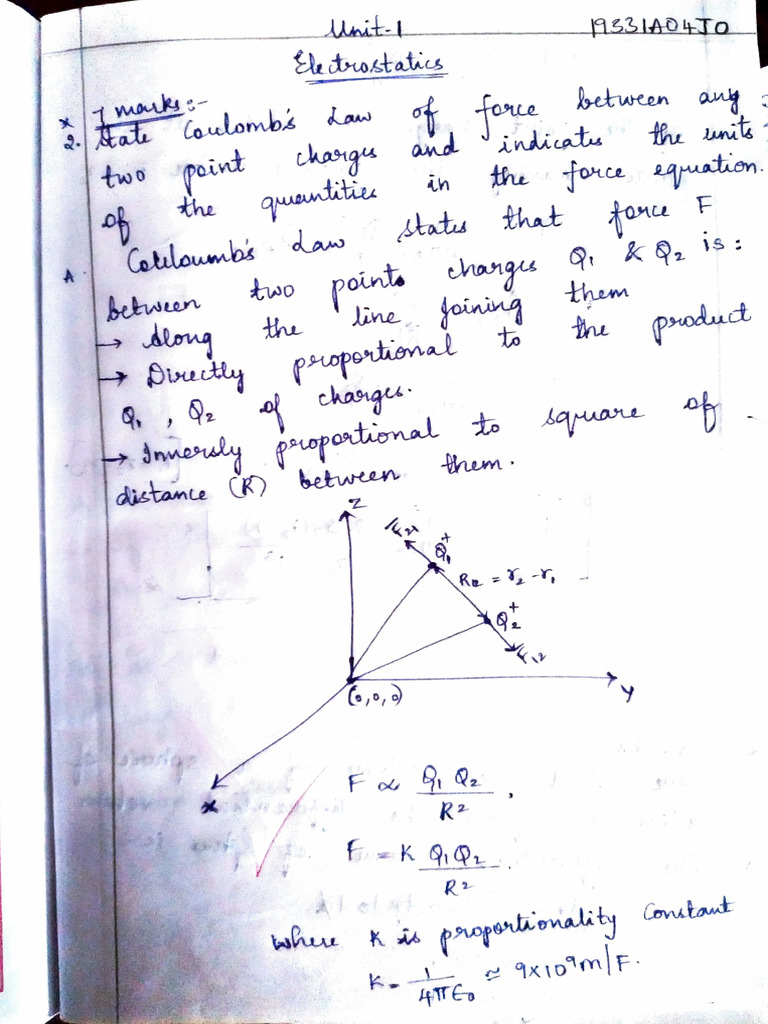 Unit-1
19331A04J0
Electrostatics
* 7 marks:-
2. State Coulomb's Law of force between any
two point charges and indicates the units
of the quantities in the force equation.
A. Couloumb's Law states that force F
between two points charges Q1 & Q2 is:
→ Along the line joining them
→ Directly proportional to the product
Q1, Q2 of charges.
→ Inversly proportional to square of
distance (R) between them.
Z
F21
Q1+
R12 = r2 - r1
Q2+
F12
(0,0,0)
Y
X
F ∝ Q1 Q2 / R²,
F = K Q1Q2 / R².
where K is proportionality constant
K = 1/4πε0 ≃ 9×10⁹m/F.